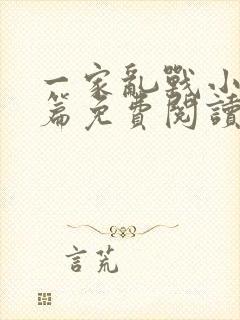 一家亂戰小
篇免費閱讀
言荒